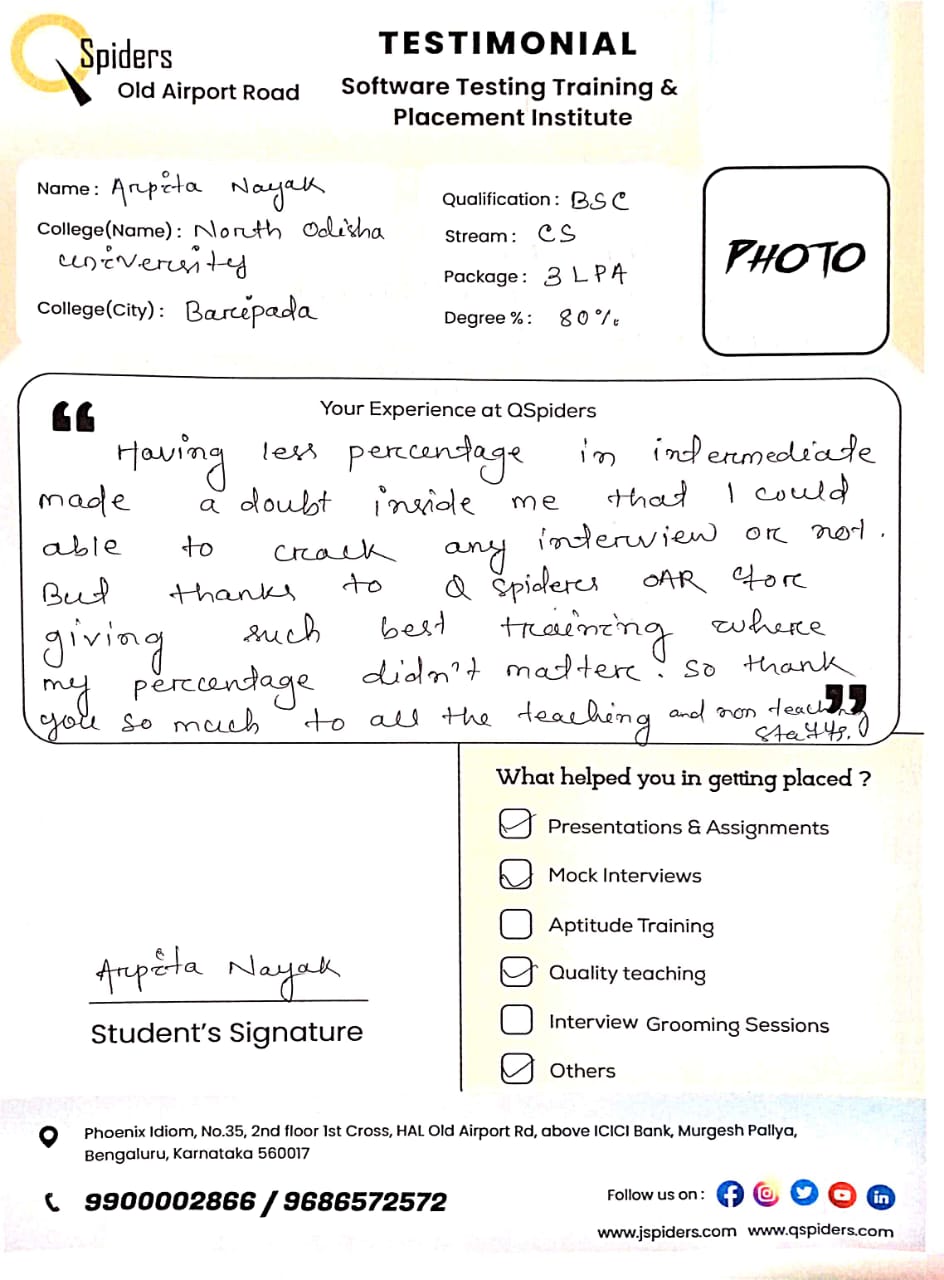 QSpiders
Old Airport Road
TESTIMONIAL
Software Testing Training &
Placement Institute
Name: Arpita Nayak
College(Name): North Odisha
university
College(City): Baripada
Qualification: BSC
Stream: CS
Package: 3 LPA
Degree %: 80%
PHOTO
Your Experience at QSpiders
Having less percentage in intermediate
made a doubt inside me that I could
able to crack any interview or not.
But thanks to Q Spiders OAR for
giving such best training where
my percentage didn't matter. so thank
you so much to all the teaching and non teaching
staffs.
What helped you in getting placed ?
Presentations & Assignments
Mock Interviews
Aptitude Training
Quality teaching
Interview Grooming Sessions
Others
Arpita Nayak
Student's Signature
Phoenix Idiom, No.35, 2nd floor 1st Cross, HAL Old Airport Rd, above ICICI Bank, Murgesh Pallya,
Bengaluru, Karnataka 560017
9900002866 / 9686572572
Follow us on :
www.jspiders.com www.qspiders.com